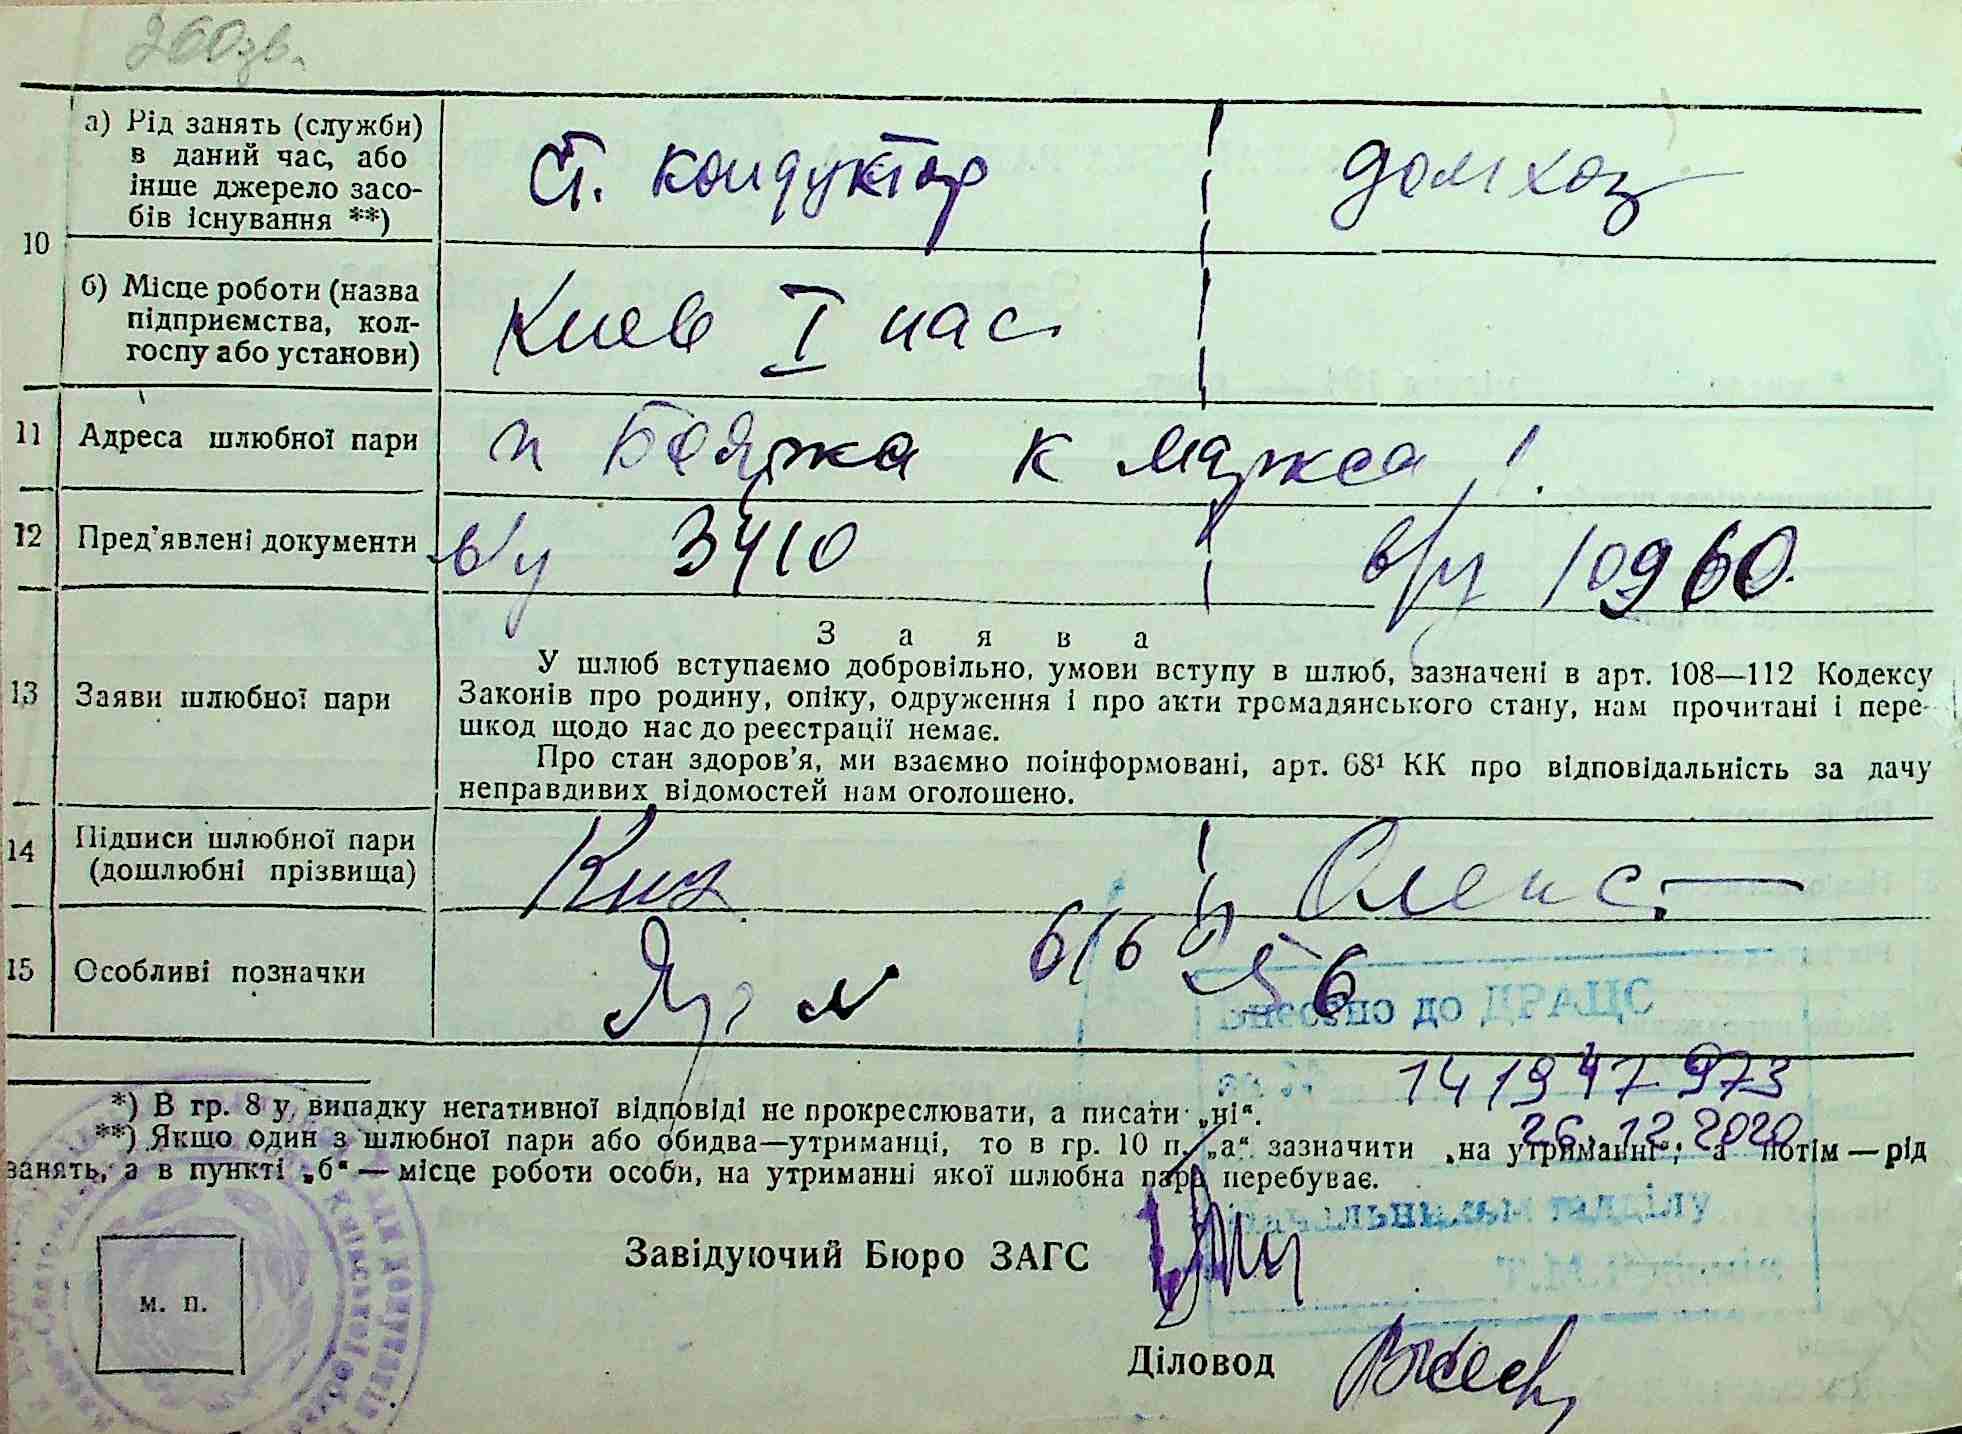 260зв.
10
а) Рід занять (служби)
в даний час, або
інше джерело засо-
бів існування **)
Ст. кондуктор
домхоз
б) Місце роботи (назва
підприємства, кол-
госпу або установи)
Киев I пас
11 Адреса шлюбної пари
п Боярка К Маркса 1.
12 Пред'явлені документи
в/у 3410
в/у 10960.
13 Заяви шлюбної пари
Заява
У шлюб вступаємо добровільно, умови вступу в шлюб, зазначені в арт. 108—112 Кодексу
Законів про родину, опіку, одруження і про акти громадянського стану, нам прочитані і пере-
шкод щодо нас до реєстрації немає.
Про стан здоров'я, ми взаємно поінформовані, арт. 68¹ КК про відповідальність за дачу
неправдивих відомостей нам оголошено.
14 Підписи шлюбної пари
(дошлюбні прізвища)
15 Особливі позначки
Внесено до ДРАЦС
14 1947 973
26.12.2020
*) В гр. 8 у випадку негативної відповіді не прокреслювати, а писати „ні“.
**) Якщо один з шлюбної пари або обидва—утриманці, то в гр. 10 п. „а“ зазначити „на утриманні“; а потім — рід
занять, а в пункті „б“ — місце роботи особи, на утриманні якої шлюбна пара перебуває.
Завідуючий Бюро ЗАГС
м. п.
Діловод